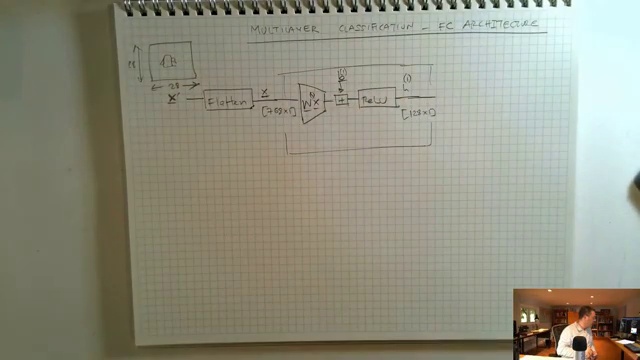 MULTILAYER CLASSIFICATION - FC ARCHITECTURE
28
28
x' Flatten x [782x1] W x + ReLU h (1) [128x1]